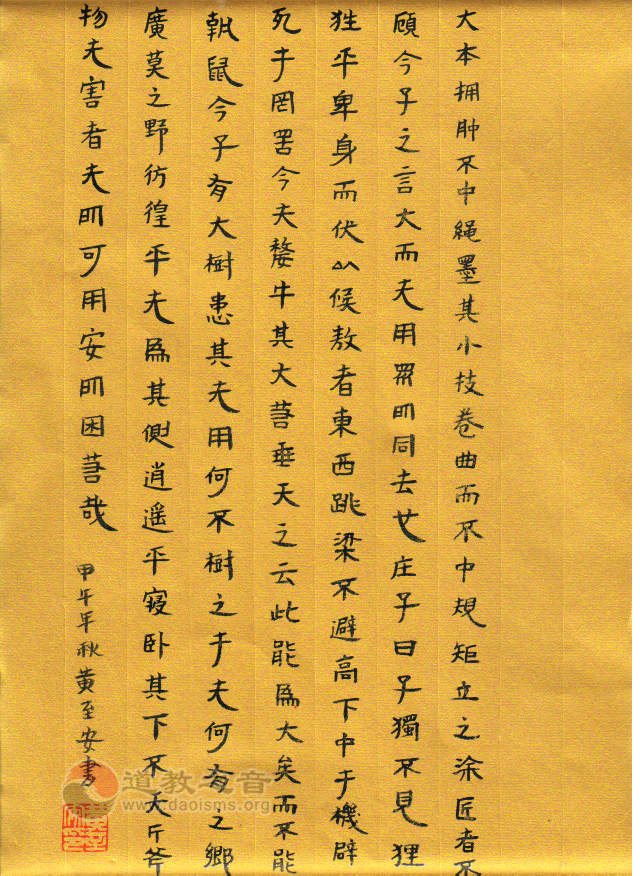 大本拥肿不中繩墨其小技卷曲而不中規矩立之涂匠者不
顧今子之言大而无用眾所同去也庄子曰子獨不見狸
狌乎卑身而伏以候敖者東西跳梁不避高下中于機辟
死于罔罟今夫斄牛其大若垂天之云此能為大矣而不能
執鼠今子有大樹患其无用何不樹之于无何有之鄉
廣莫之野彷徨乎无為其側逍遥乎寢卧其下不夭斤斧
物无害者无所可用安所困苦哉
甲午年秋黄至安書
道教之音
www.daoisms.org